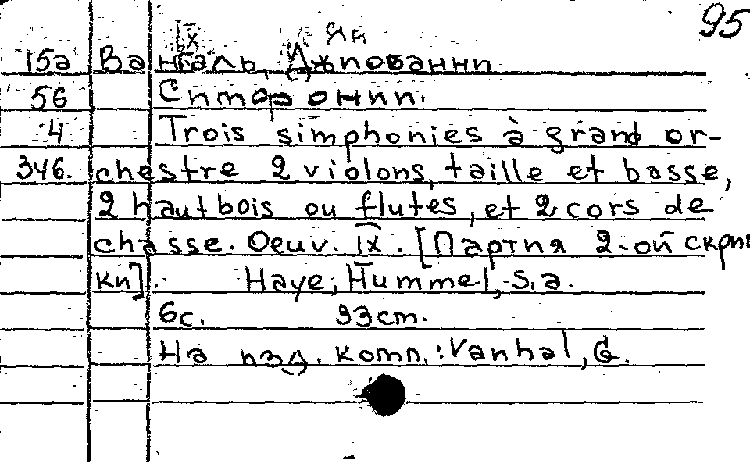 95
IX Ян
15а Вангаль, Джпованни
5б Сптфонпп.
4 Trois simphonies à grand or-
346. chestre 2 violons, taille et basse,
2 hautbois ou flutes, et 2 cors de
chasse. Oeuv. IX. [Партия 2-ой скрип
ки]. Haye, Hummel, s.a.
6с. 33cm.
На изд. комп.: Vanhal, G.